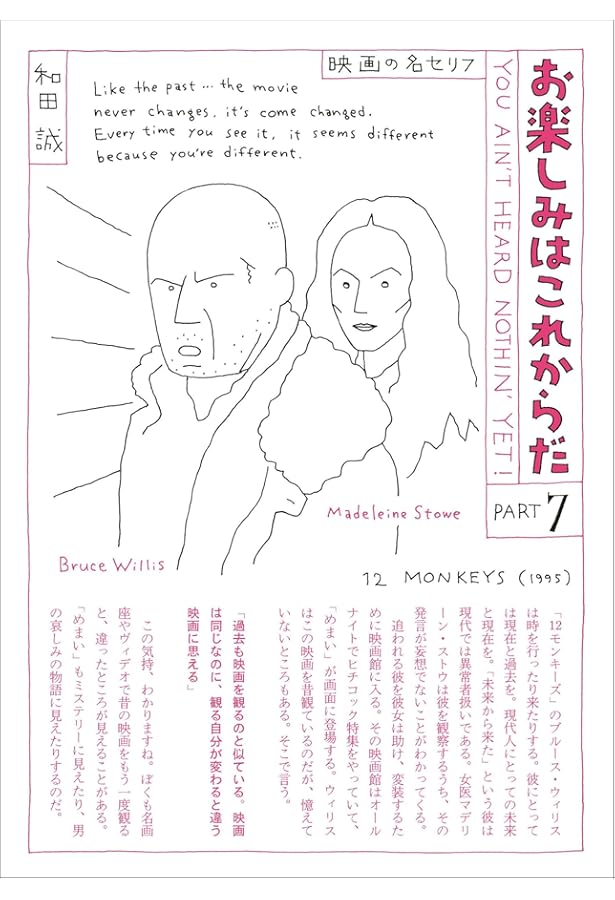 お楽しみはこれからだ
YOU AIN'T HEARD NOTHIN' YET!
PART 7
映画の名セリフ
和田 誠
Like the past … the movie
never changes. it's come changed.
Every time you see it, it seems different
because you're different.
Madeleine Stowe
Bruce Willis
12 MONKEYS (1995)
「12モンキーズ」のブルース・ウィリス
は時を行ったり来たりする。彼にとって
は現在と過去を。現代人にとっての未来
と現在を。「未来から来た」という彼は
現代では異常者扱いである。女医マデリ
ーン・ストウは彼を観察するうち、その
発言が妄想でないことがわかってくる。
追われる彼を彼女は助け、変装するた
めに映画館に入る。その映画館はオール
ナイトでヒチコック特集をやっていて、
「めまい」が画面に登場する。ウィリス
はこの映画を昔観ているのだが、憶えて
いないところもある。そこで言う。
「過去も映画を観るのと似ている。映画
は同じなのに、観る自分が変わると違う
映画に思える」
この気持、わかりますね。ぼくも名画
座やヴィデオで昔の映画をもう一度観る
と、違ったところが見えることがある。
「めまい」もミステリーに見えたり、男
の哀しみの物語に見えたりするのだ。